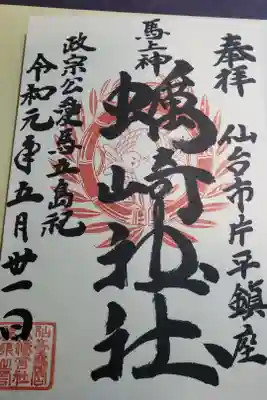 奉拝
仙台市片平鎮座
馬上神
蠣崎神社
政宗公愛馬五島祀
令和元年五月廿一日